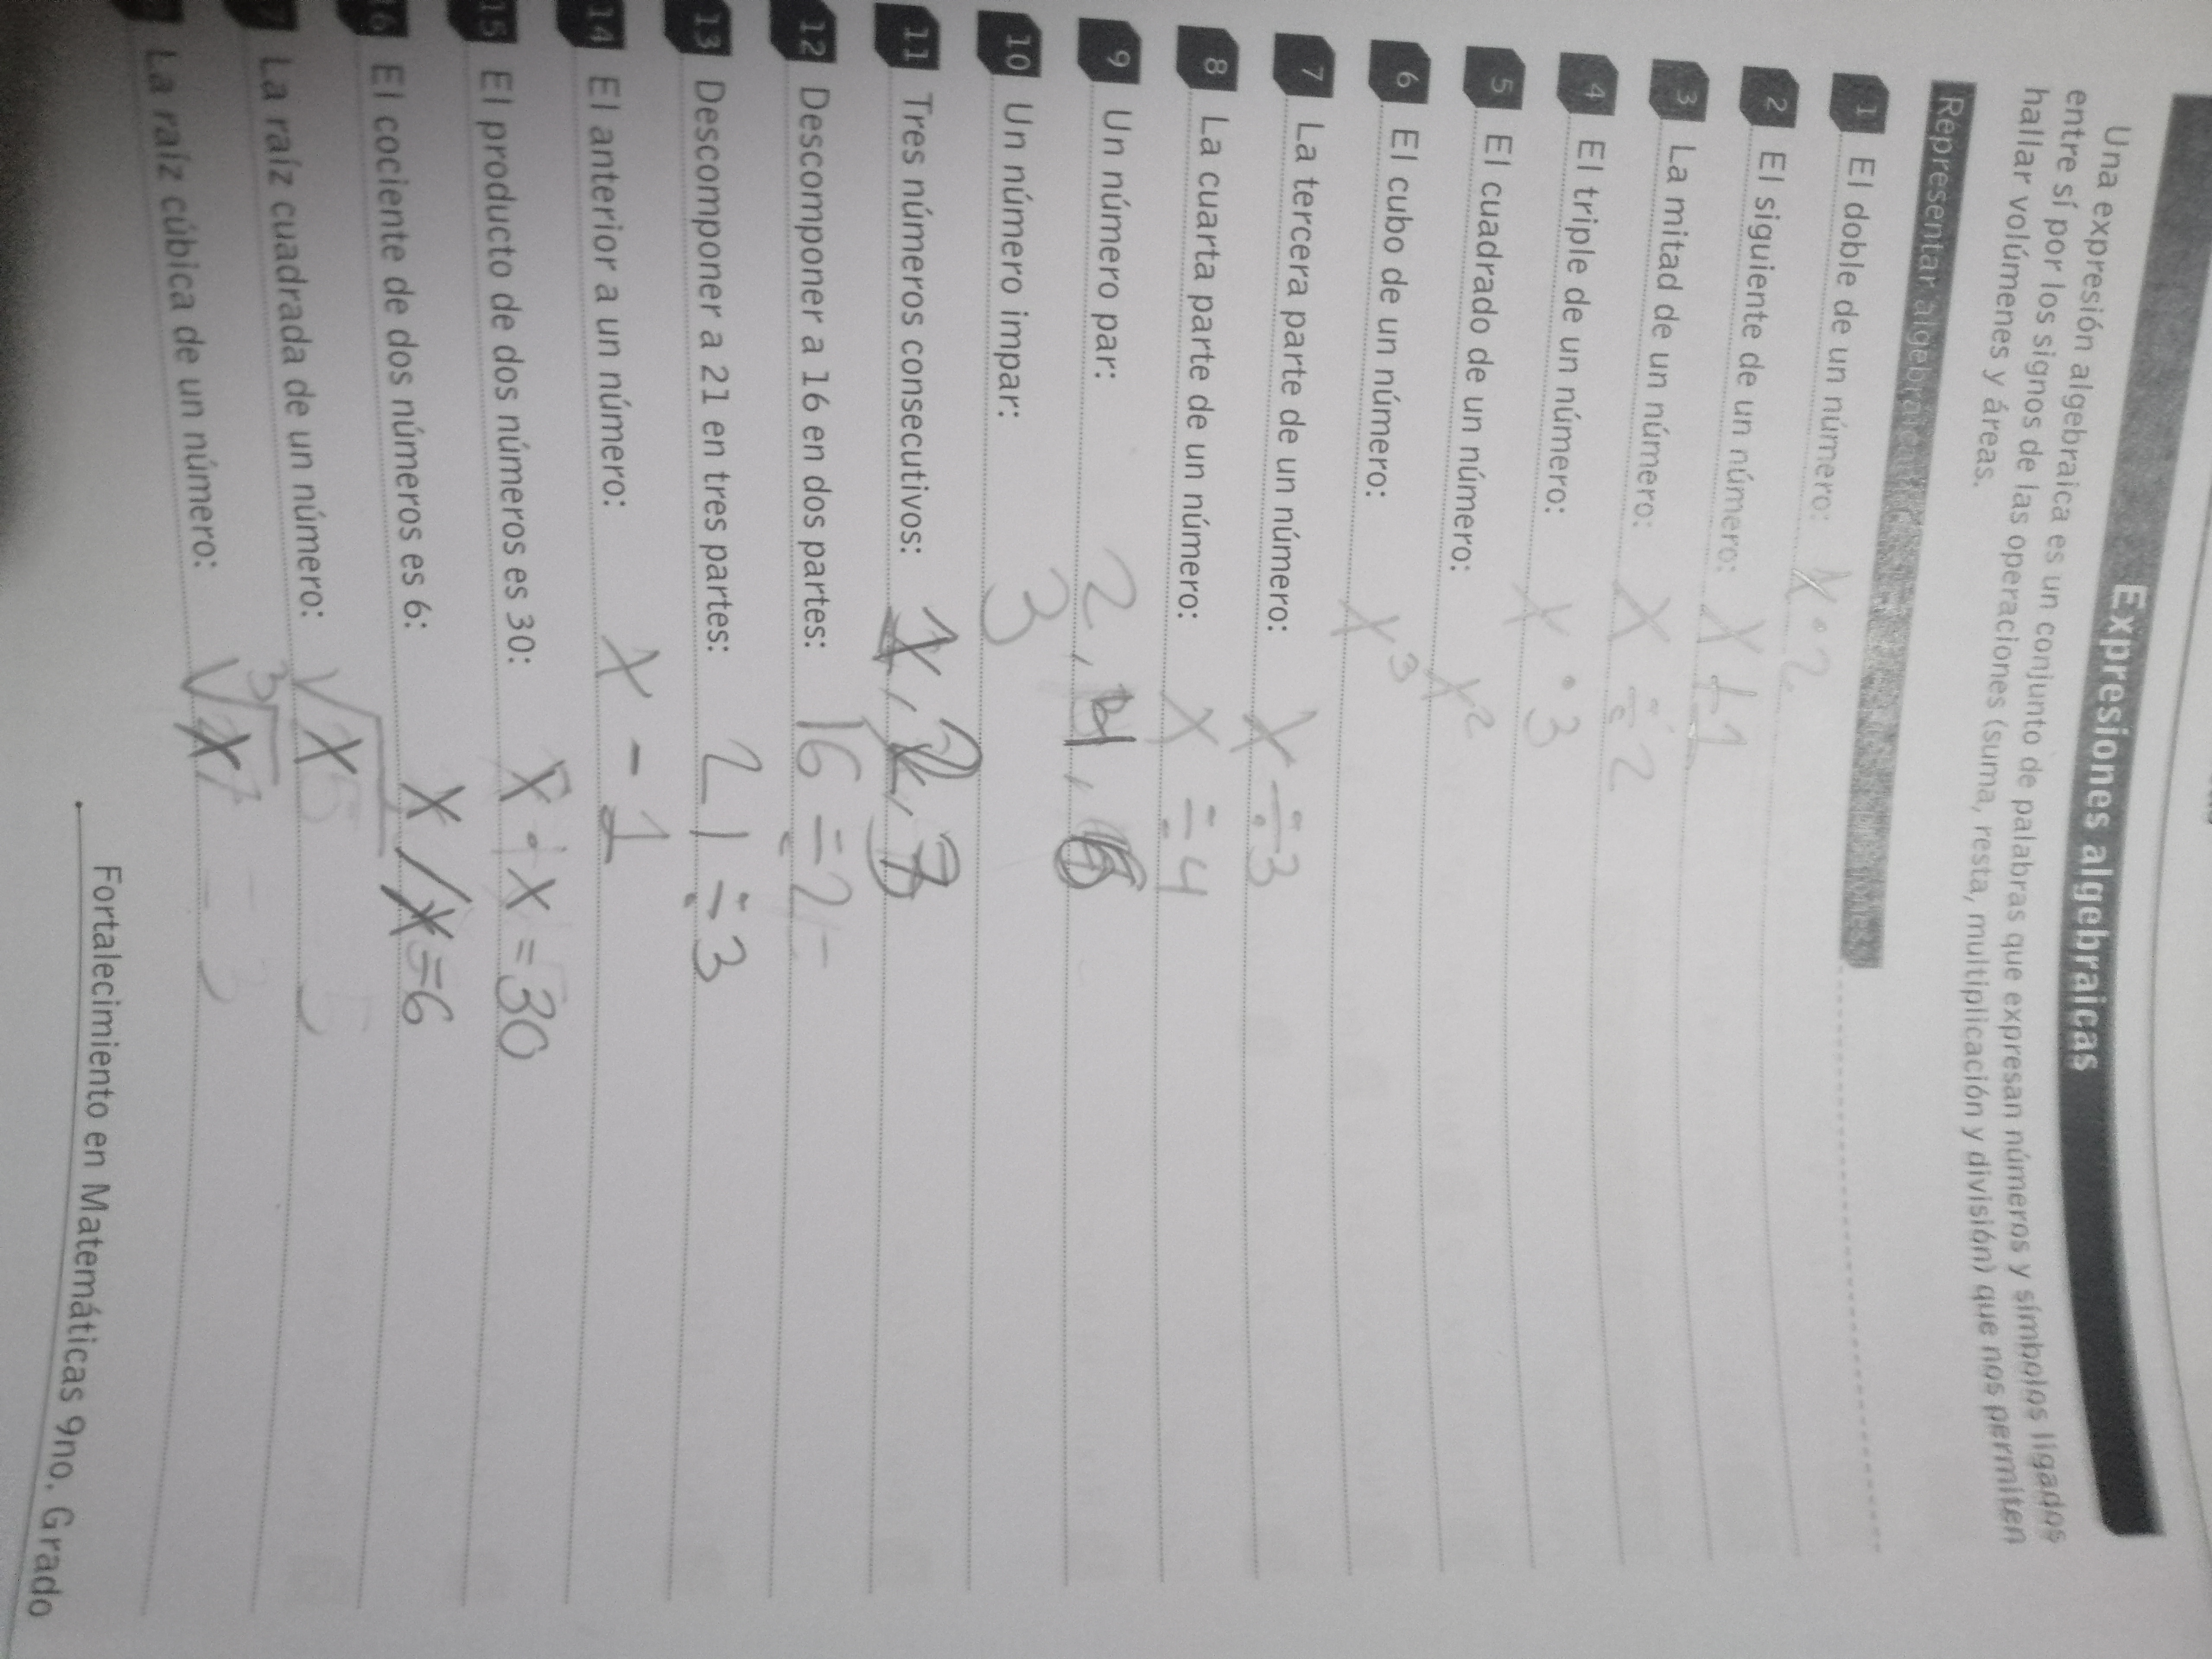 Expresiones algebraicas
Una expresión algebraica es un conjunto de palabras que expresan números y símbolos ligados
entre sí por los signos de las operaciones (suma, resta, multiplicación y división) que nos permiten
hallar volúmenes y áreas.
Representar
1 El doble de un número: x · 2
2 El siguiente de un número: x + 1
3 La mitad de un número: x ÷ 2
4 El triple de un número: x · 3
5 El cuadrado de un número: x²
6 El cubo de un número: x³
7 La tercera parte de un número: x ÷ 3
8 La cuarta parte de un número: x ÷ 4
9 Un número par: 2, 4, 6
10 Un número impar: 3
11 Tres números consecutivos: 1, 2, 3
12 Descomponer a 16 en dos partes: 16 ÷ 2
13 Descomponer a 21 en tres partes: 21 ÷ 3
14 El anterior a un número: x - 1
15 El producto de dos números es 30: x · x = 30
16 El cociente de dos números es 6: x / x = 6
7 La raíz cuadrada de un número: √x
La raíz cúbica de un número: ³√x
Fortalecimiento en Matemáticas 9no. Grado